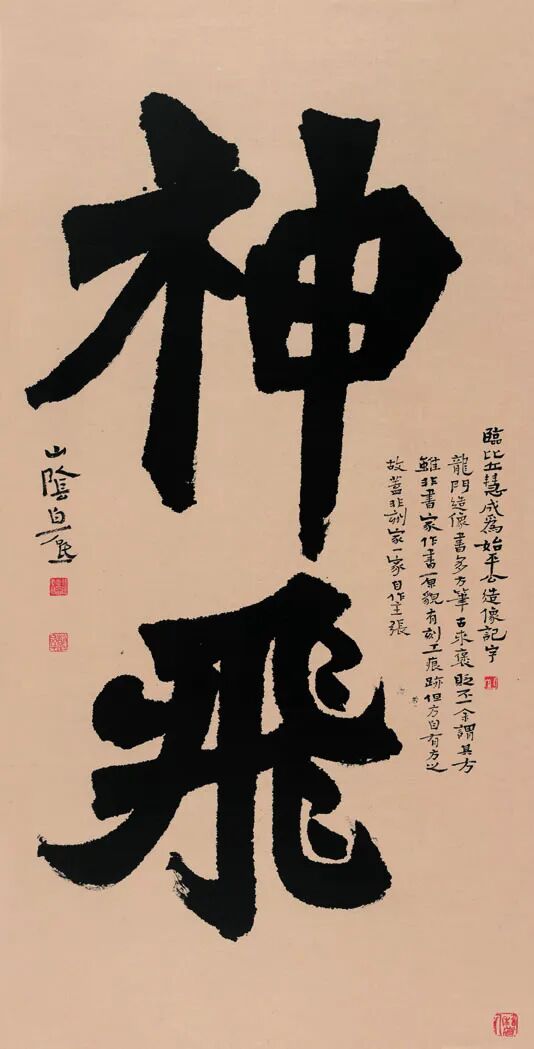 臨比丘慧成爲始平公造像記字
龍門造像書多方筆古來褒貶不一余謂其方
雖非書家作書原貌有刻工痕跡但方自有方之
故蓋非刻家一家自作主張
神飛
山陰白砥